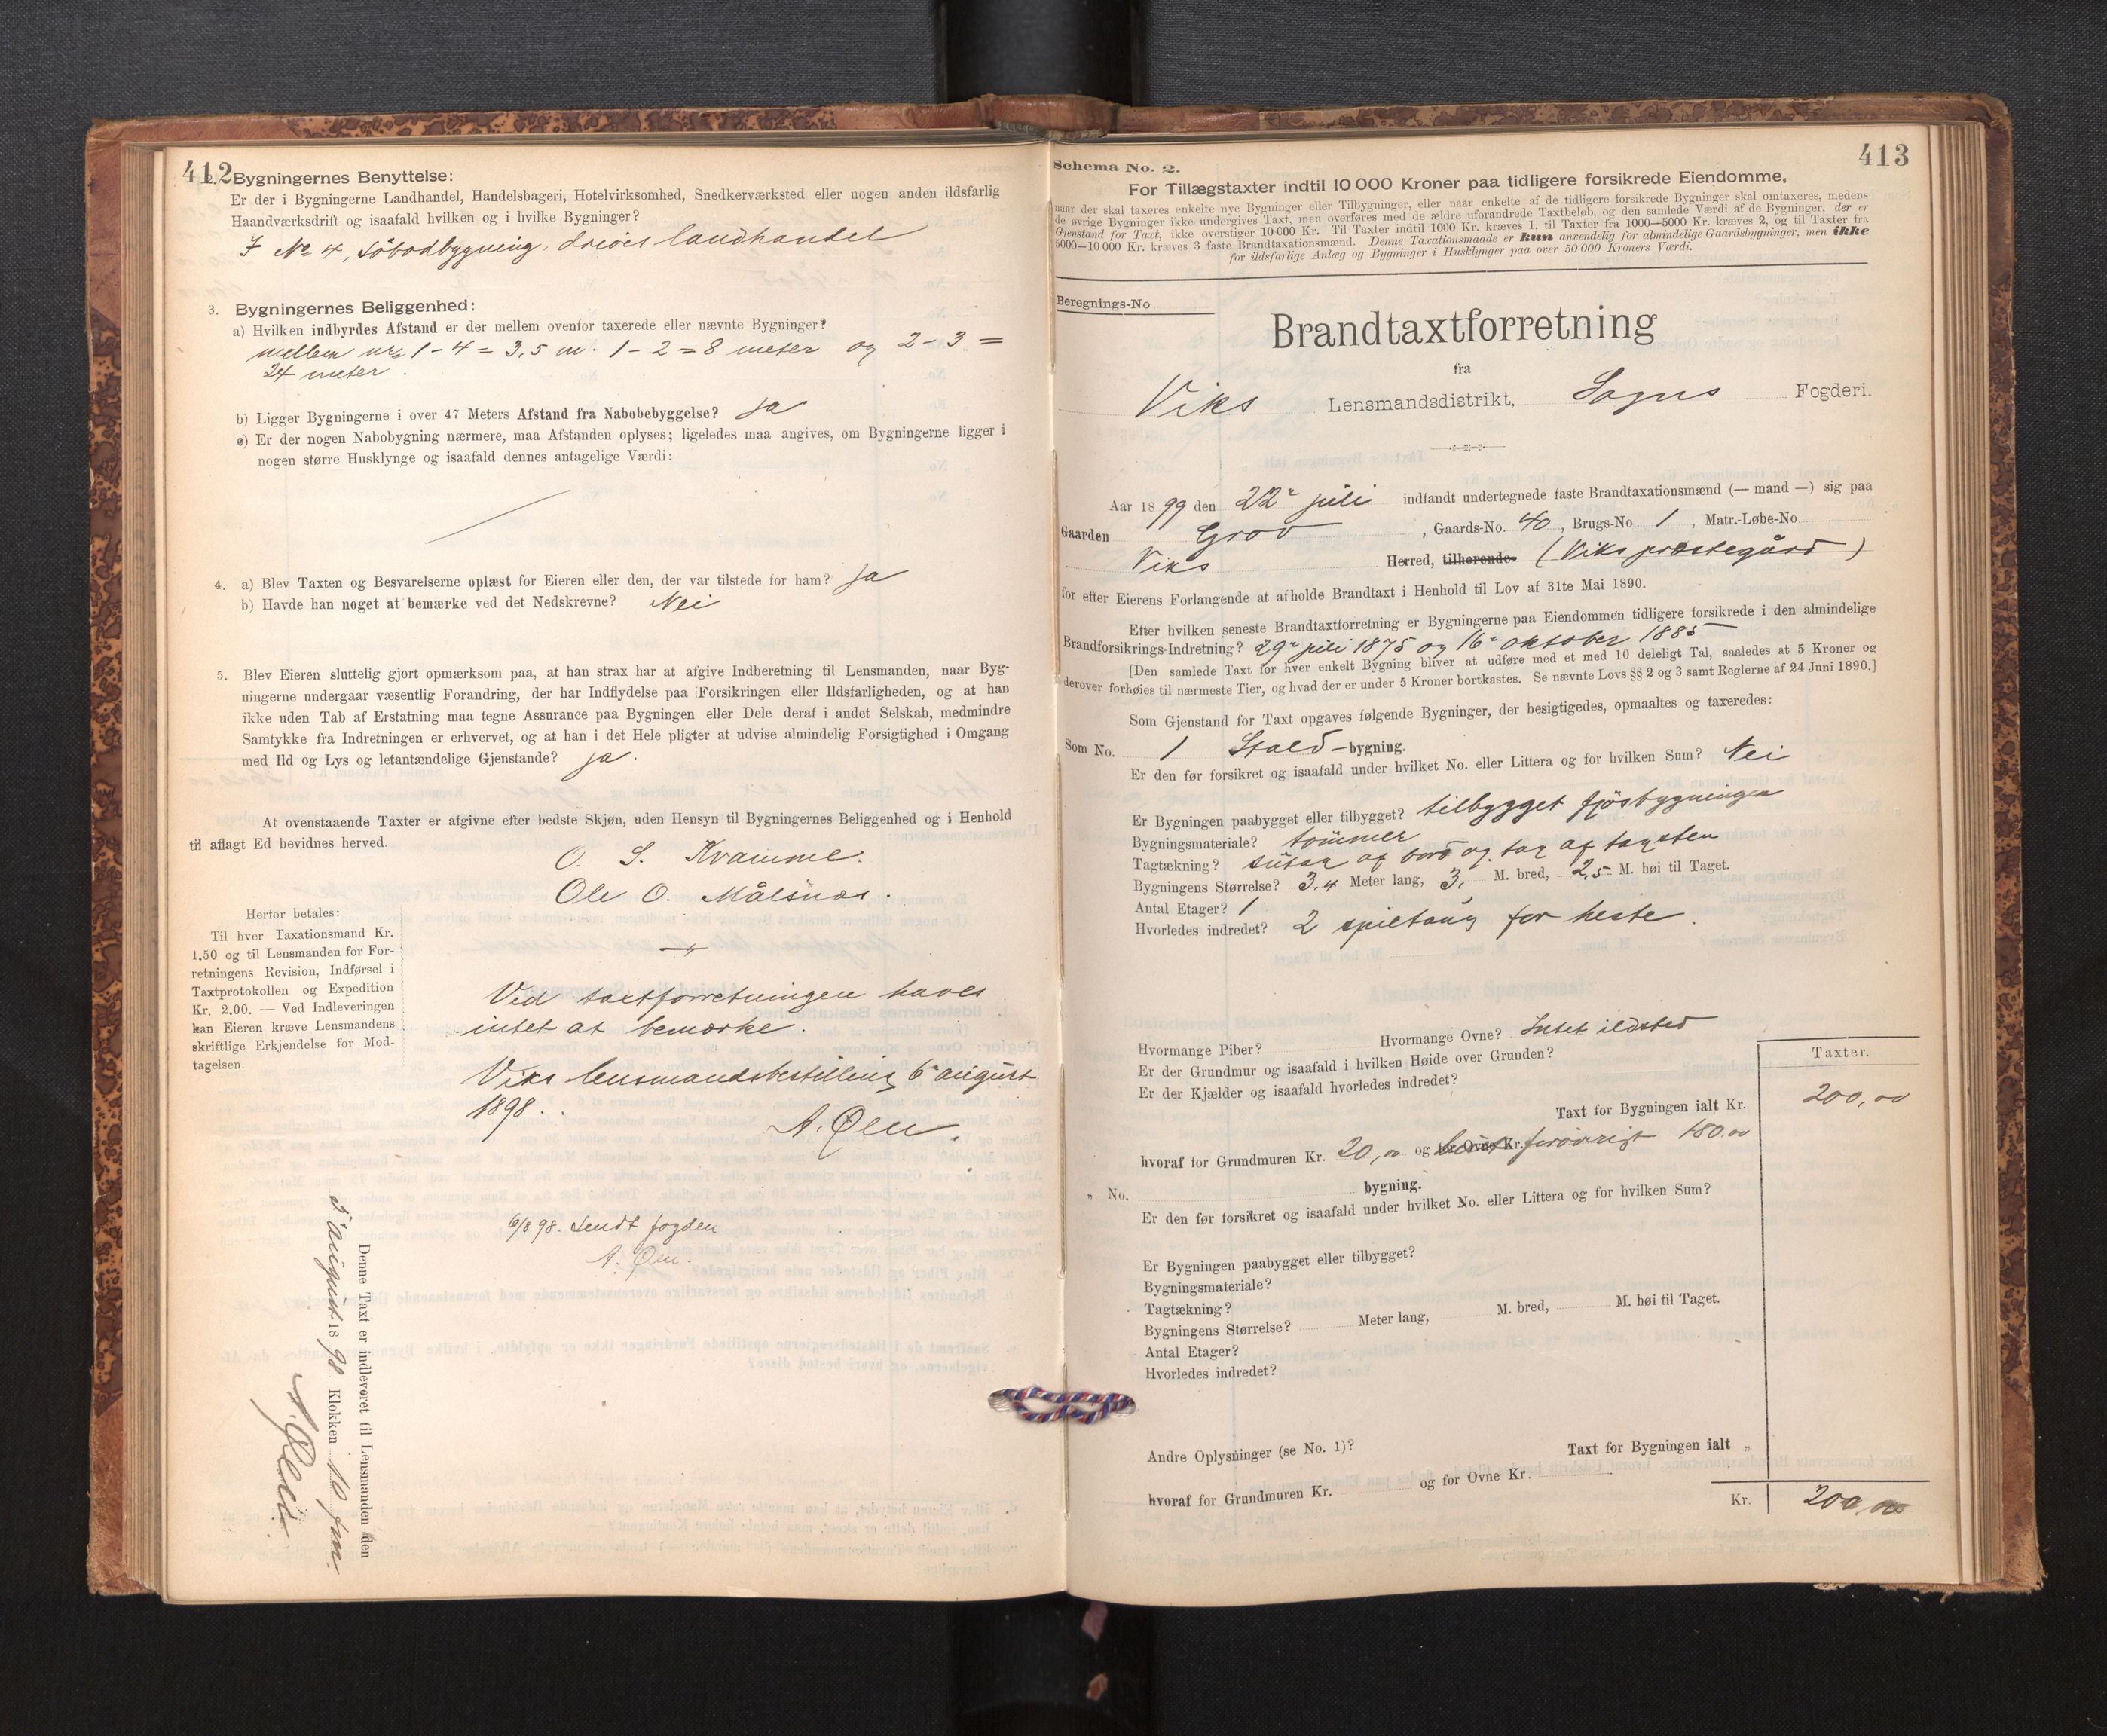 412
2. Bygningernes Benyttelse:
Er der i Bygningerne Landhandel, Handelsbageri, Hotelvirksomhed, Snedkerværksted eller nogen anden ildsfarlig
Haandværksdrift og isaafald hvilken og i hvilke Bygninger?
I No 4, Söbodbygning, drives landhandel
3. Bygningernes Beliggenhed:
a) Hvilken indbyrdes Afstand er der mellem ovenfor taxerede eller nævnte Bygninger?
mellem nrs 1 - 4 = 3,5 m. 1 - 2 = 8 meter og 2 - 3 =
24 meter.
b) Ligger Bygningerne i over 47 Meters Afstand fra Nabobebyggelse? ja
c) Er der nogen Nabobygning nærmere, maa Afstanden oplyses; ligeledes maa angives, om Bygningerne ligger i
nogen større Husklynge og isaafald dennes antagelige Værdi:
4. a) Blev Taxten og Besvarelserne oplæst for Eieren eller den, der var tilstede for ham? ja
b) Havde han noget at bemærke ved det Nedskrevne? Nei
5. Blev Eieren sluttelig gjort opmærksom paa, at han strax har at afgive Indberetning til Lensmanden, naar Byg-
ningerne undergaar væsentlig Forandring, der har Indflydelse paa Forsikringen eller Ildsfarligheden, og at han
ikke uden Tab af Erstatning maa tegne Assurance paa Bygningen eller Dele deraf i andet Selskab, medmindre
Samtykke fra Indretningen er erhvervet, og at han i det Hele pligter at udvise almindelig Forsigtighed i Omgang
med Ild og Lys og letantændelige Gjenstande? ja.
At ovenstaaende Taxter er afgivne efter bedste Skjøn, uden Hensyn til Bygningernes Beliggenhed og i Henhold
til aflagt Ed bevidnes herved.
O. S. Kvamme.
Ole O. Målsnæs.
Herfor betales:
Til hver Taxationsmand Kr.
1.50 og til Lensmanden for For-
retningens Revision, Indførsel i
Taxtprotokollen og Expedition
Kr. 2.00. — Ved Indleveringen
kan Eieren kræve Lensmandens
skriftlige Erkjendelse for Mod-
tagelsen.
Ved taxtforretningen haves
intet at bemærke.
Viks lensmandsbestilling 6 august
1898.
A. Øen.
6/8 98. Sendt fogden
A. Øen.
Denne Taxt er indleveret til Lensmanden den
5 august 1898 Klokken 10 fm.
A. Øen.
413
Schema No. 2.
For Tillægstaxter indtil 10 000 Kroner paa tidligere forsikrede Eiendomme,
naar der skal taxeres enkelte nye Bygninger eller Tilbygninger, eller naar enkelte af de tidligere forsikrede Bygninger skal omtaxeres, medens
de øvrige Bygninger ikke undergives Taxt, men overføres med de ældre uforandrede Taxtbeløb, og den samlede Værdi af de Bygninger, der er
Gjenstand for Taxt, ikke overstiger 10 000 Kr. Til Taxter indtil 1000 Kr. kræves 1, til Taxter fra 1000—5000 Kr. kræves 2, og til Taxter fra
5000—10 000 Kr. kræves 3 faste Brandtaxationsmænd. Denne Taxationsmaade er kun anvendelig for almindelige Gaardsbygninger, men ikke
for ildsfarlige Anlæg og Bygninger i Husklynger paa over 50 000 Kroners Værdi.
Beregnings-No
Brandtaxtforretning
fra
Viks Lensmandsdistrikt, Sogns Fogderi.
Aar 1899 den 22 juli indfandt undertegnede faste Brandtaxationsmænd (— mand —) sig paa
Gaarden Grov, Gaards-No. 40, Brugs-No. 1, Matr.-Løbe-No.
Viks Herred, tilhørende (Viks præstegård)
for efter Eierens Forlangende at afholde Brandtaxt i Henhold til Lov af 31te Mai 1890.
Efter hvilken seneste Brandtaxtforretning er Bygningerne paa Eiendommen tidligere forsikrede i den almindelige
Brandforsikrings-Indretning? 29 juli 1875 og 16 oktober 1885
[Den samlede Taxt for hver enkelt Bygning bliver at udføre med et med 10 deleligt Tal, saaledes at 5 Kroner og
derover forhøies til nærmeste Tier, og hvad der er under 5 Kroner bortkastes. Se nævnte Lovs §§ 2 og 3 samt Reglerne af 24 Juni 1890.]
Som Gjenstand for Taxt opgaves følgende Bygninger, der besigtigedes, opmaaltes og taxeredes:
Som No. 1 Stald-bygning.
Er den før forsikret og isaafald under hvilket No. eller Littera og for hvilken Sum? Nei
Er Bygningen paabygget eller tilbygget? tilbygget fjösbygningen
Bygningsmateriale? tömmer
Tagtækning? sutag af bord og tag af tagsten
Bygningens Størrelse? 3,4 Meter lang, 3, M. bred, 2,5 M. høi til Taget.
Antal Etager? 1
Hvorledes indredet? 2 spiltaug for heste.
Hvormange Piber? Hvormange Ovne? Intet ildsted
Er der Grundmur og isaafald i hvilken Høide over Grunden?
Er der Kjælder og isaafald hvorledes indredet?
Taxter.
Taxt for Bygningen ialt Kr. 200,00
hvoraf for Grundmuren Kr. 20,00 og for Ovne Kr. forøvrigt 180.00
„ No. bygning.
Er den før forsikret og isaafald under hvilket No. eller Littera og for hvilken Sum?
Er Bygningen paabygget eller tilbygget?
Bygningsmateriale?
Tagtækning?
Bygningens Størrelse? Meter lang, M. bred, M. høi til Taget.
Antal Etager?
Hvorledes indredet?
Andre Oplysninger (se No. 1)? Taxt for Bygningen ialt „
hvoraf for Grundmuren Kr. og for Ovne Kr.
Kr. 200,00